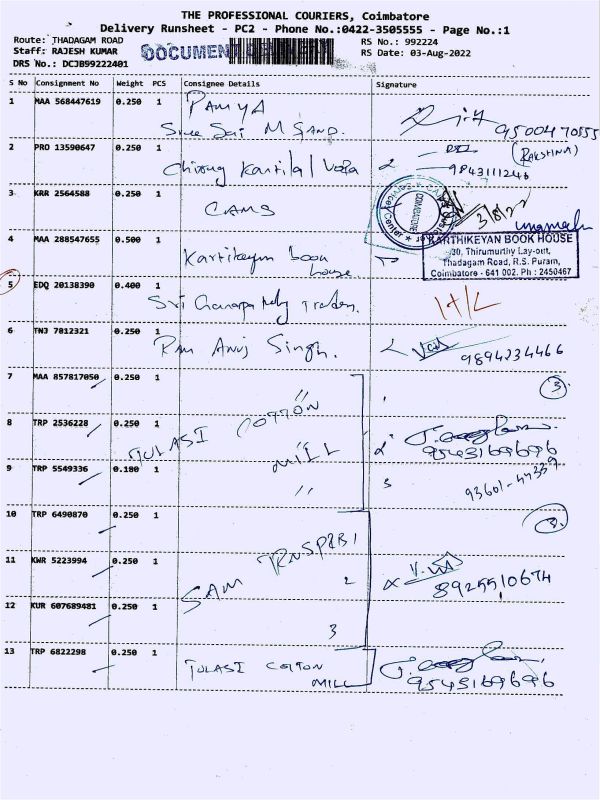 THE PROFESSIONAL COURIERS, Coimbatore
Delivery Runsheet - PC2 - Phone No.:0422-3505555 - Page No.:1
Route: THADAGAM ROAD
RS No.: 992224
Staff: RAJESH KUMAR
DOCUMENT
RS Date: 03-Aug-2022
DRS No.: DCJB99222401
S No Consignment No Weight PCS Consignee Details Signature
1 MAA 568447619 0.250 1
Sree Sai M Sand.
9500470555
2 PRO 13590647 0.250 1
Chirag Kantilal Vora
(RAKSHNA)
9843111246
3 KRR 2564588 0.250 1 CAMS
COIMBATORE
Service Center
3/8/22
4 MAA 288547655 0.500 1 Kartikeyan book
house
KARTHIKEYAN BOOK HOUSE
30, Thirumurthy Lay-out,
Thadagam Road, R.S. Puram,
Coimbatore - 641 002. Ph : 2450467
5 EDQ 20138390 0.400 1
6 TNJ 7012321 0.250 1 Ram Anuj Singh.
9894234466
7 MAA 857817050 0.250 1 〃
3.
8 TRP 2536228 0.250 1 TULASI COTTON
9543169696
9 TRP 5549336 0.180 1 MILL
〃
10 TRP 6490870 0.250 1
3.
11 KWR 5223994 0.250 1 SAM
2
8925510674
12 KUR 607689481 0.250 1
3
13 TRP 6822298 0.250 1 TULASI COTTON
MILL
9543169696